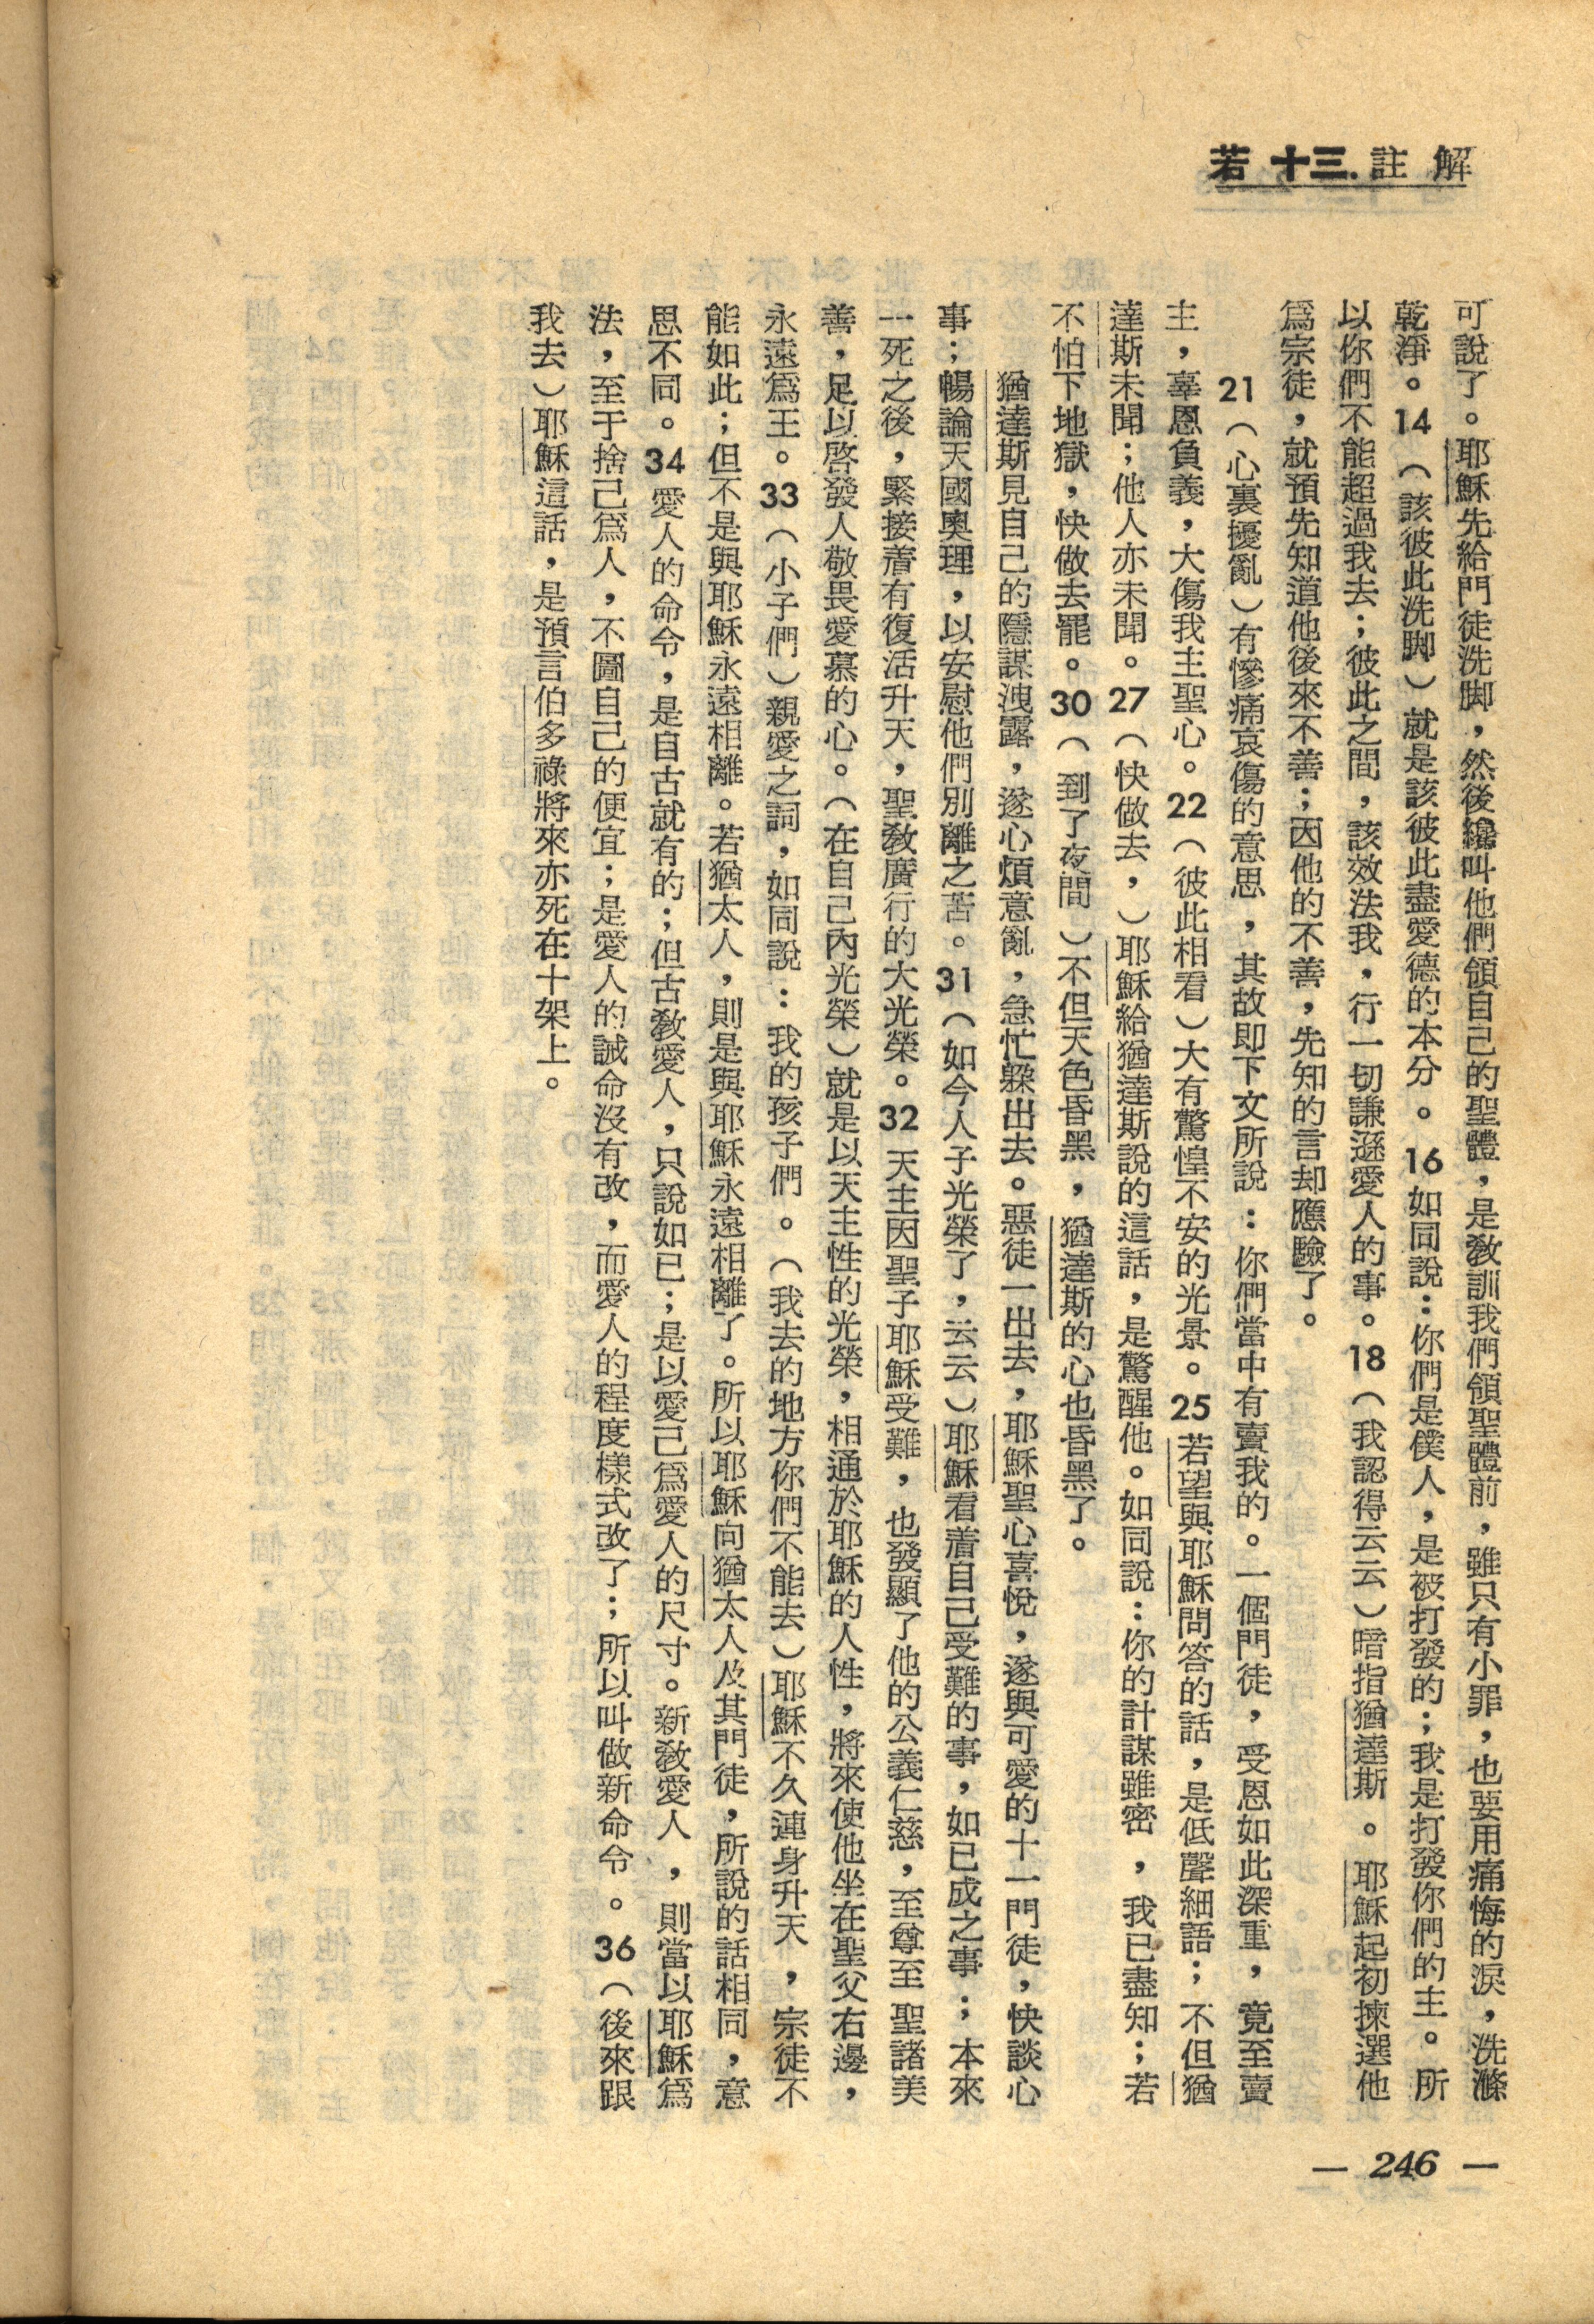 若十三.註解
可說了。耶穌先給門徒洗脚，然後纔叫他們領自己的聖體，是教訓我們領聖體前，雖只有小罪，也要用痛悔的淚，洗滌
乾淨。14（該彼此洗脚）就是該彼此盡愛德的本分。16如同說：你們是僕人，是被打發的；我是打發你們的主。所
以你們不能超過我去；彼此之間，該效法我，行一切謙遜愛人的事。18（我認得云云）暗指猶達斯。耶穌起初揀選他
爲宗徒，就預先知道他後來不善；因他的不善，先知的言却應驗了。
21（心裏擾亂）有慘痛哀傷的意思，其故即下文所說：你們當中有賣我的。一個門徒，受恩如此深重，竟至賣
主，辜恩負義，大傷我主聖心。22（彼此相看）大有驚惶不安的光景。25若望與耶穌問答的話，是低聲細語；不但猶
達斯未聞；他人亦未聞。27（快做去，）耶穌給猶達斯說的這話，是驚醒他。如同說：你的計謀雖密，我已盡知；若
不怕下地獄，快做去罷。30（到了夜間）不但天色昏黑，猶達斯的心也昏黑了。
猶達斯見自己的隱謀洩露，遂心煩意亂，急忙躲出去。惡徒一出去，耶穌聖心喜悅，遂與可愛的十一門徒，快談心
事；暢論天國奧理，以安慰他們別離之苦。31（如今人子光榮了，云云）耶穌看着自己受難的事，如已成之事；本來
一死之後，緊接着有復活升天，聖教廣行的大光榮。32天主因聖子耶穌受難，也發顯了他的公義仁慈，至尊至聖諸美
善，足以啓發人敬畏愛慕的心。（在自己內光榮）就是以天主性的光榮，相通於耶穌的人性，將來使他坐在聖父右邊，
永遠爲王。33（小子們）親愛之詞，如同說：我的孩子們。（我去的地方你們不能去）耶穌不久連身升天，宗徒不
能如此；但不是與耶穌永遠相離。若猶太人，則是與耶穌永遠相離了。所以耶穌向猶太人及其門徒，所說的話相同，意
思不同。34愛人的命令，是自古就有的；但古教愛人，只說如己；是以愛己爲愛人的尺寸。新教愛人，則當以耶穌爲
法，至于捨己爲人，不圖自己的便宜；是愛人的誡命沒有改，而愛人的程度樣式改了；所以叫做新命令。36（後來跟
我去）耶穌這話，是預言伯多祿將來亦死在十架上。
— 246 —